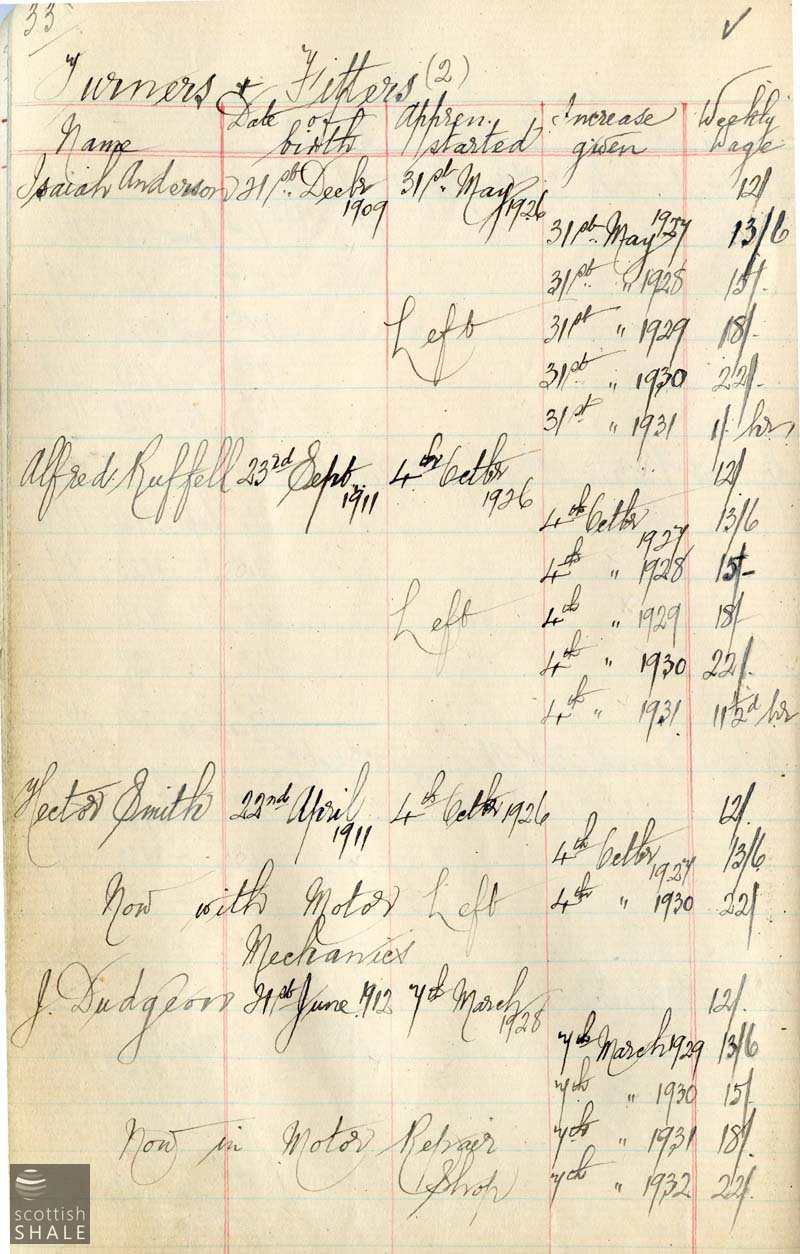 33
Turners & Fitters (2)
Name Date of birth Appren. started Increase given Weekly Wage
Isaiah Anderson 21st Decbr 1909 31st May 1926 12/
31st May 1927 13/6
31st " 1928 15/-
Left 31st " 1929 18/-
31st " 1930 22/-
31st " 1931 1/- hr
Alfred Ruffell 23rd Sept. 1911 4th Octbr 1926 12/
4th Octbr 1927 13/6
4th " 1928 15/-
Left 4th " 1929 18/-
4th " 1930 22/-
4th " 1931 11½d hr
Hector Smith 22nd April 1911 4th Octbr 1926 12/-
4th Octbr 1927 13/6
Now with Motor Left 4th " 1930 22/-
Mechanics
J. Dudgeon 21st June 1912 7th March 1928 12/-
7th March 1929 13/6
7th " 1930 15/-
Now in Motor Repair 7th " 1931 18/-
Shop 7th " 1932 22/-
scottish
SHALE